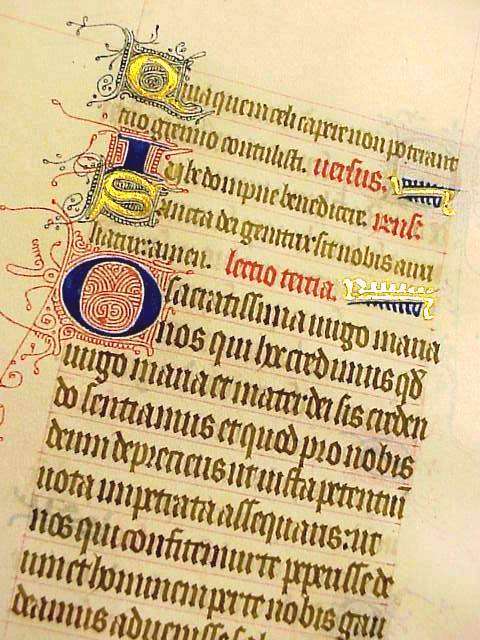 Quia quem celi capere non poterant
tuo gremio contulisti. versus.
Iube dompne benedicere.
Sancta dei genitrix sit nobis auxi
liatrix. amen. lectio tertia.
O sacratissima virgo maria
nos qui hec credimus qd
virgo maria et mater dei sis eiusdem
do sentiamus et quod pro nobis
deum depreceris ut iusta petentiū
vota impetrata assequaris: ut
nos qui confitemur te peperisse de
um et hominem per te nobis grau
deamus advenisse